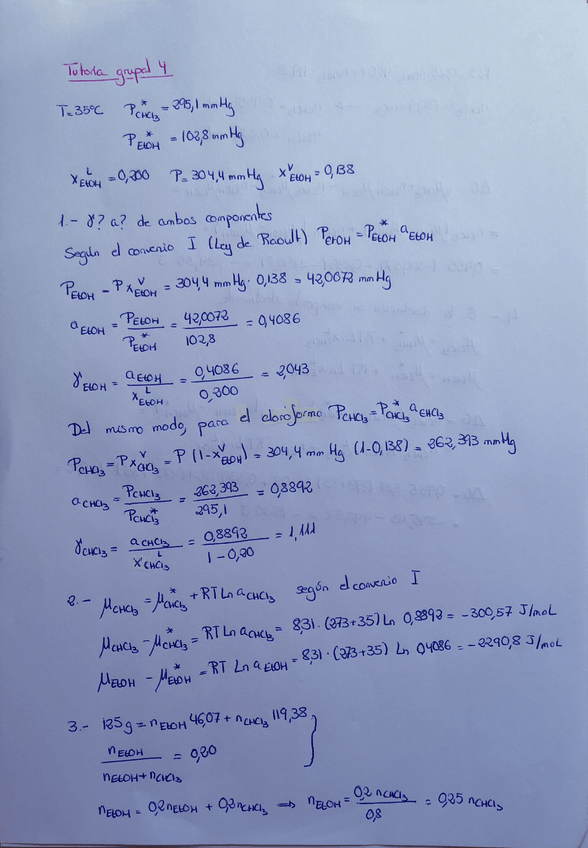 Tutoría grupal 4
T=35ºC P*CHCl3 = 295,1 mmHg
P*EtOH = 102,8 mmHg
xᴸEtOH = 0,200 P= 304,4 mmHg xⱽEtOH = 0,138
1.- γ? a? de ambos componentes
Según el convenio I (Ley de Raoult) PEtOH = P*EtOH aEtOH
PEtOH = P xⱽEtOH = 304,4 mmHg · 0,138 = 42,0072 mmHg
aEtOH = PEtOH / P*EtOH = 42,0072 / 102,8 = 0,4086
γEtOH = aEtOH / xᴸEtOH = 0,4086 / 0,200 = 2,043
Del mismo modo, para el cloroformo PCHCl3 = P*CHCl3 aCHCl3
PCHCl3 = P xⱽCHCl3 = P (1-xⱽEtOH) = 304,4 mm Hg (1-0,138) = 262,393 mmHg
aCHCl3 = PCHCl3 / P*CHCl3 = 262,393 / 295,1 = 0,8892
γCHCl3 = aCHCl3 / xᴸCHCl3 = 0,8892 / 1-0,20 = 1,111
2.- μCHCl3 = μ*CHCl3 + RT Ln aCHCl3 según el convenio I
μCHCl3 - μ*CHCl3 = RT Ln aCHCl3 = 8,31 · (273+35) Ln 0,8892 = -300,57 J/mol
μEtOH - μ*EtOH = RT Ln aEtOH = 8,31 · (273+35) Ln 0,4086 = -2290,8 J/mol
3.- 125g = nEtOH 46,07 + nCHCl3 119,38
nEtOH / nEtOH + nCHCl3 = 0,20
nEtOH = 0,2 nEtOH + 0,2 nCHCl3 ⟹ nEtOH = 0,2 nCHCl3 / 0,8 = 0,25 nCHCl3